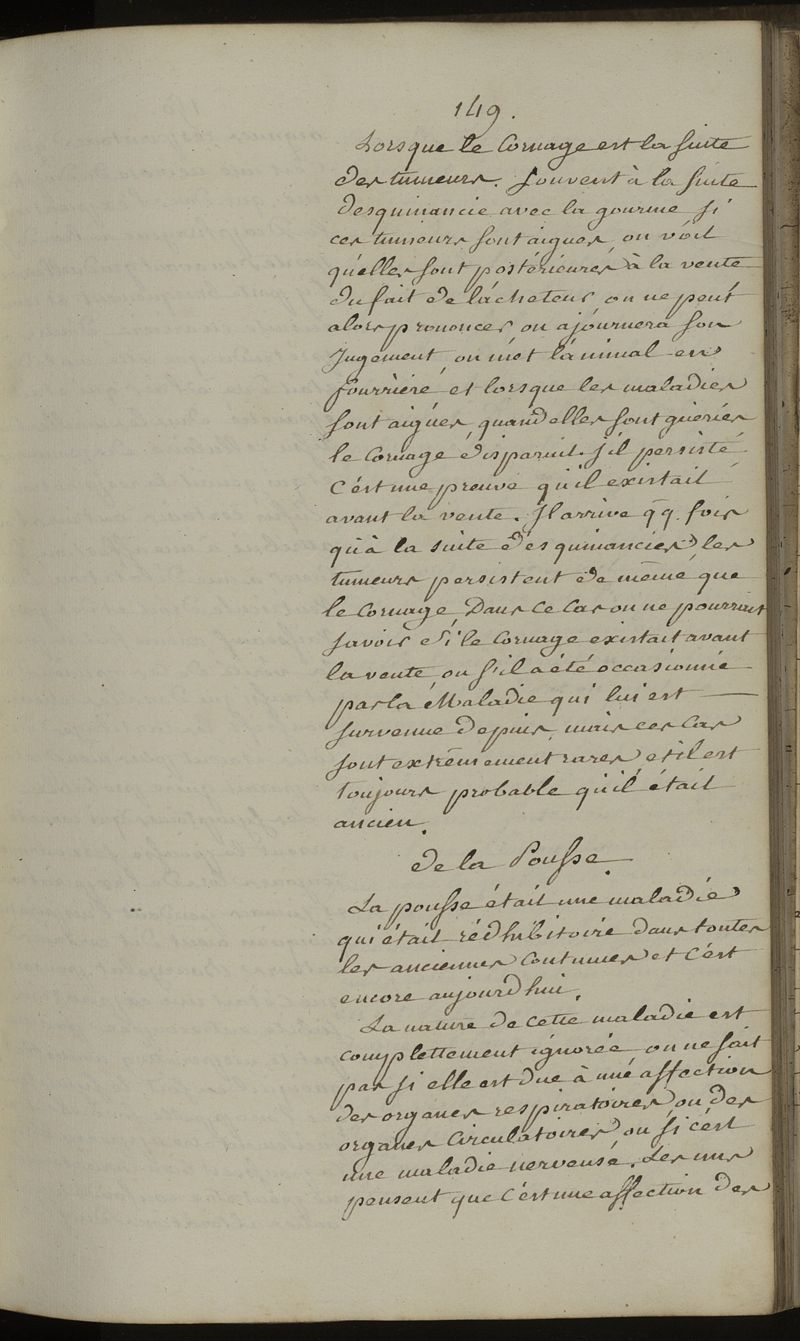 149.
Lorsque le Cornage est la suite
des tumeurs. Souvent à la suite
desquinancie avec la gourme, si
ces tumeurs sont aigues, on voit
qu'elles sont postérieures à la vente
du fait de l'acheteur, on ne peut
alors prononcer on ajournera son
Jugement, on met l'animal en
fourrière et lorsque les maladies
sont aigües, quand elles sont guéries
le Cornage disparait. S'il persiste
C'est une preuve qu'il existait
avant la vente. Il arrive qq. fois
qu'à la suite des quinancies les
tumeurs persistent de même que
le Cornage, Dans ce Cas on ne pourrait
savoir si le Cornage existait avant
la vente ou s'il a été occasionné
par la Maladie qui lui est
survenue depuis, mais ces Cas
sont extrêmement rares, et il est
toujours probable qu'il était
ancien.
de la Pousse.
La pousse était une maladie
qui était rédhibitoire dans toutes
les anciennes Coutumes et C'est
encore aujourd'hui.
La nature de cette maladie est
complettement ignorée, on ne sait
pas si elle est due à une affection
des organes respiratoires ou des
organes Circulatoires ou si c'est
une maladie nerveuse. Les uns
pensent que C'est une affection des